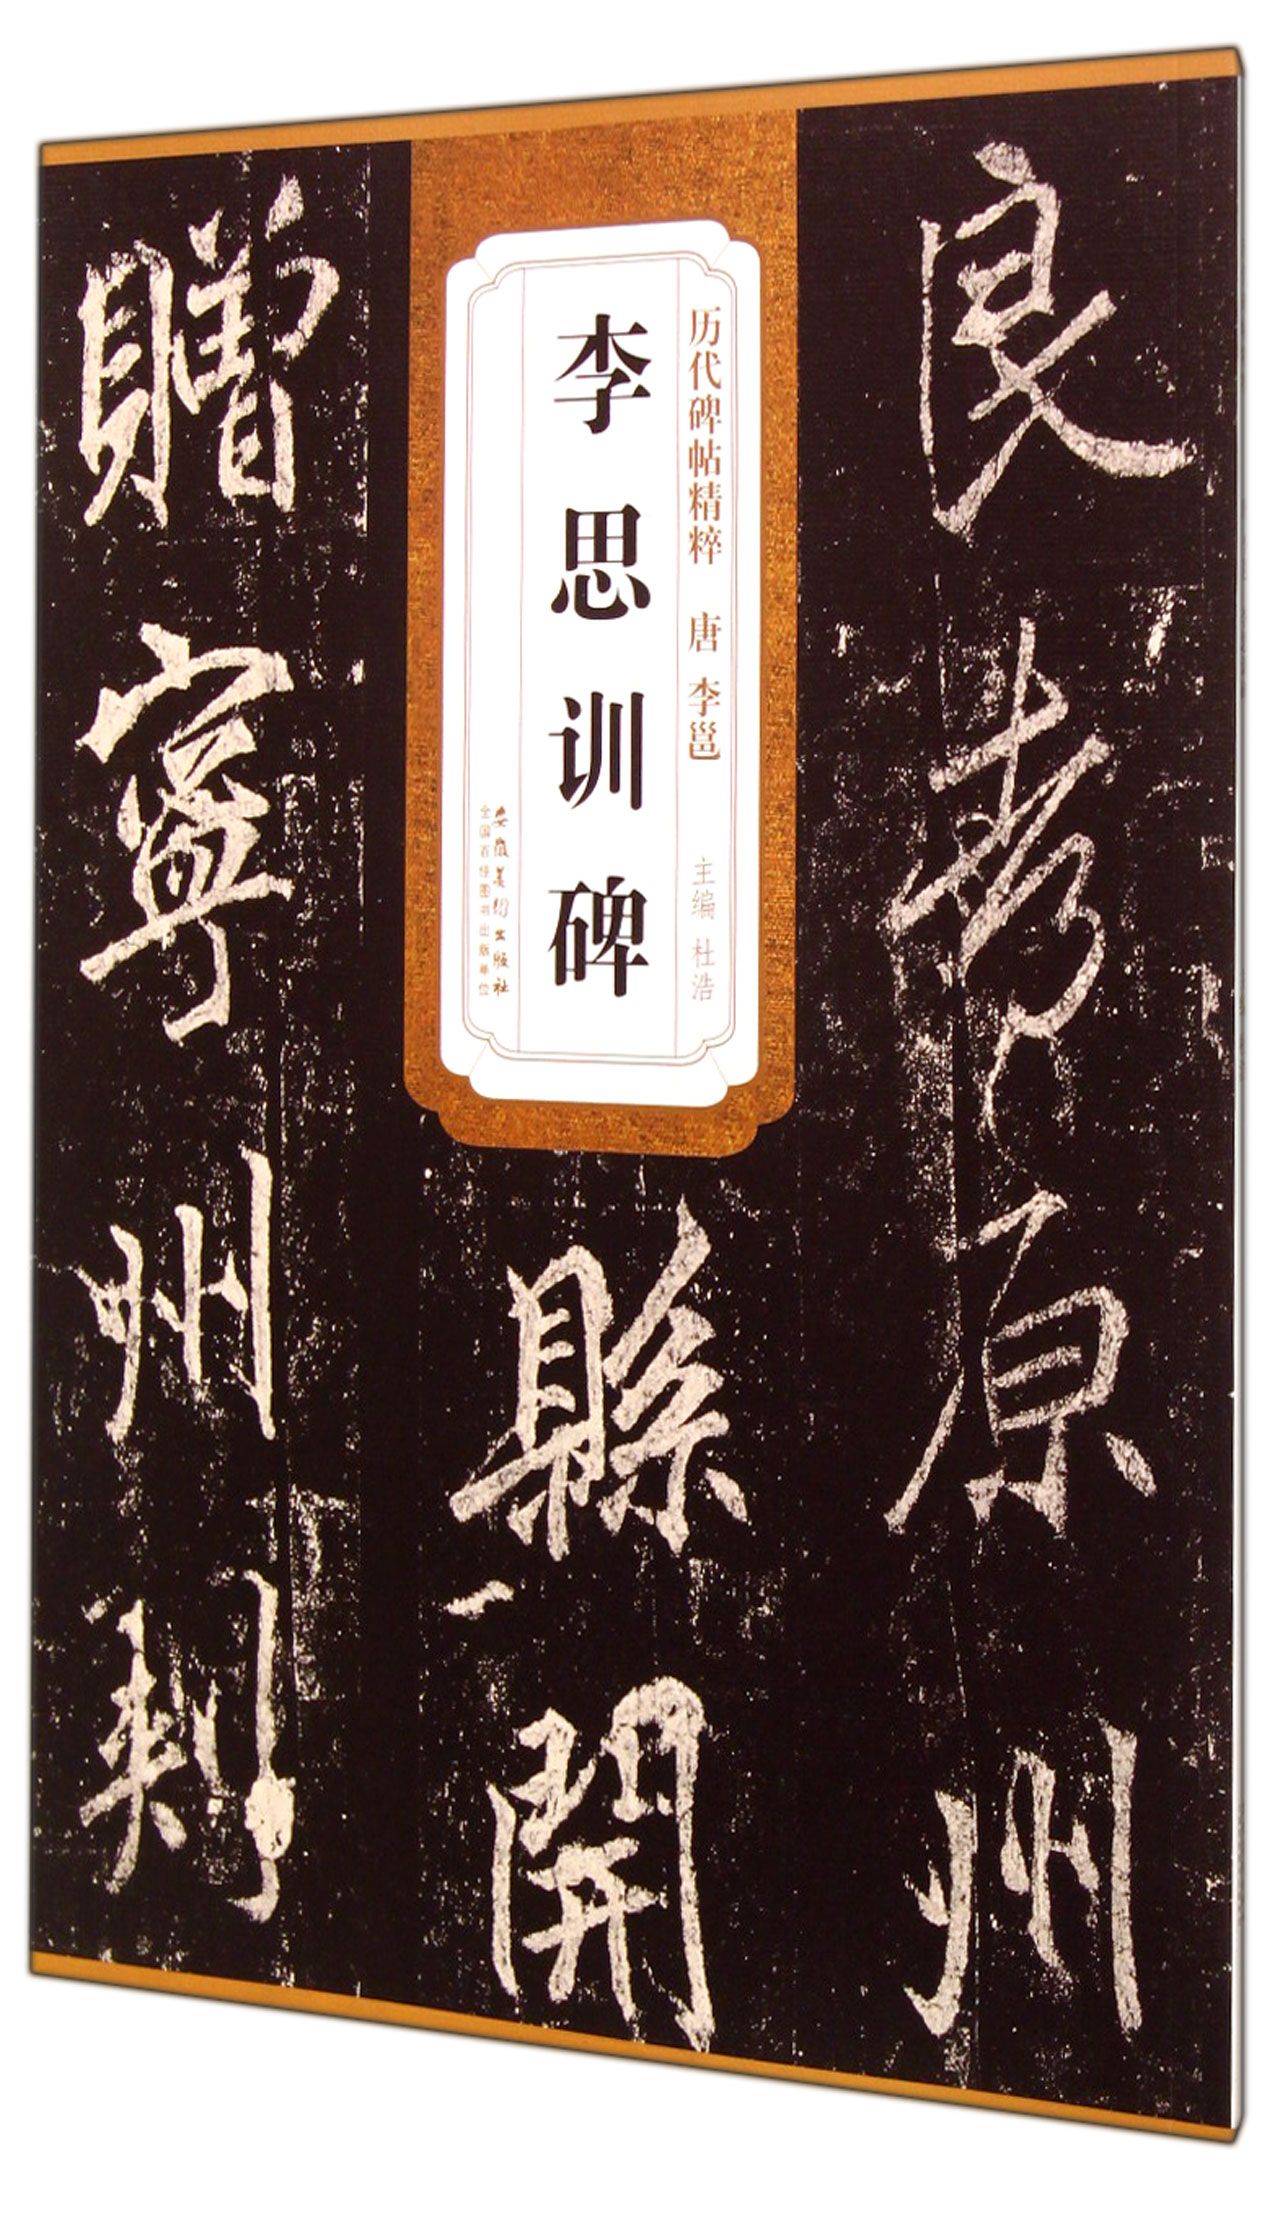 良考原州
縣開
贈寧州刺
历代碑帖精粹 唐 李邕 主编 杜浩
李思训碑
安徽美术出版社
全国百佳图书出版单位